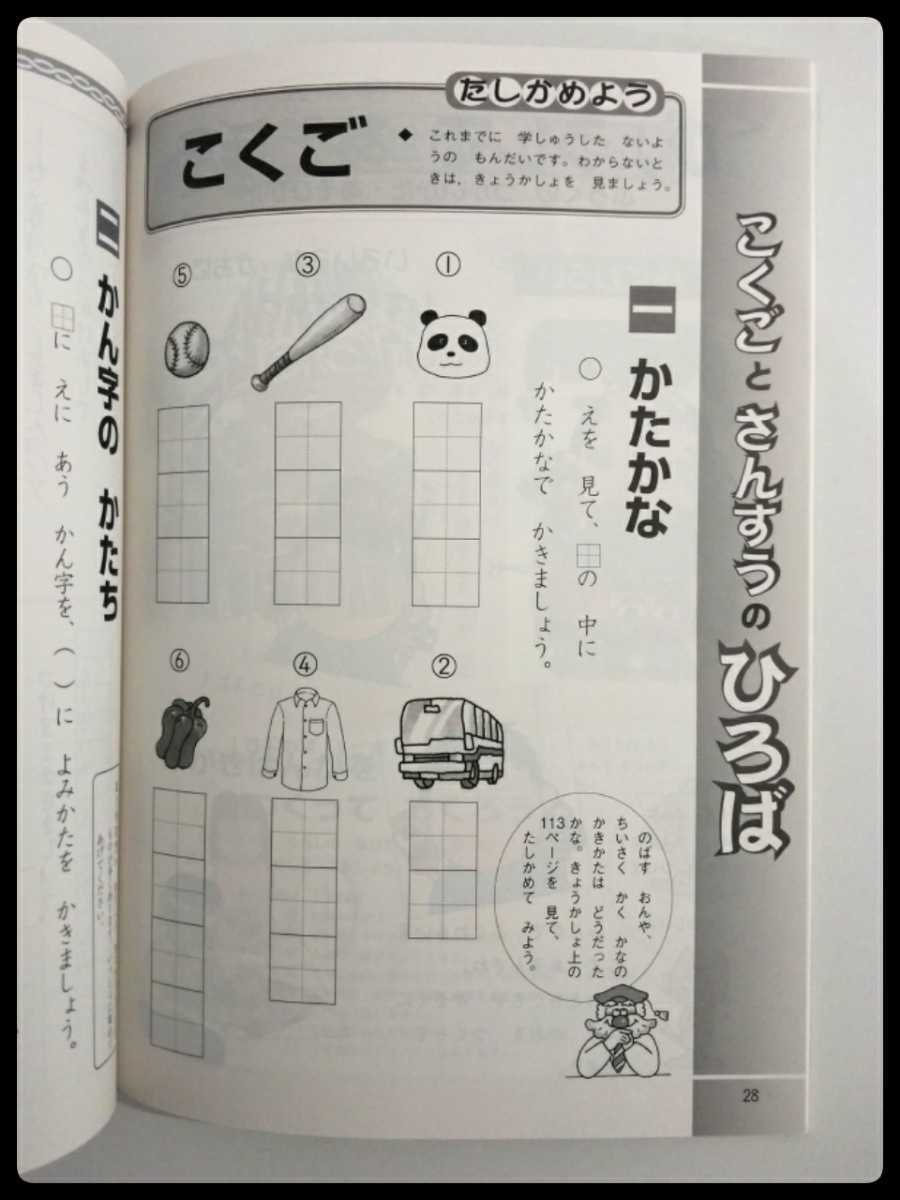 こくごとさんすうのひろば
たしかめよう
こくご
◆ これまでに 学しゅうした ないよ
うの もんだいです。わからないと
きは，きょうかしょを 見ましょう。
一 かたかな
○ えを 見て、の 中に
かたかなで かきましょう。
①
②
③
④
⑤
⑥
のばす おんや、
ちいさく かく かなの
かきかたは どうだった
かな。きょうかしょ上の
113ページを 見て、
たしかめて みよう。
28
二 かん字の かたち
○ に えに あう かん字を、（ ）に よみかたを かきましょう。